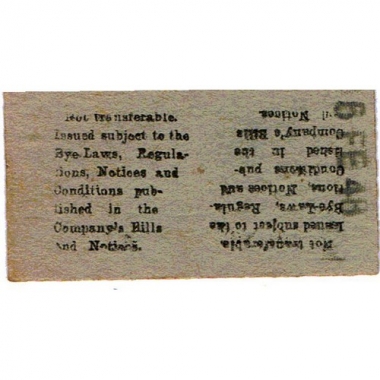 Not transferable.
Issued subject to the
Bye-Laws, Regula-
tions, Notices and
Conditions pub-
lished in the
Company's Bills
and Notices.
Not transferable
Issued subject to the
Bye-Laws, Regula-
tions, Notices and
Conditions pub-
lished in the
Company's Bills
Notices.
6 FE 46